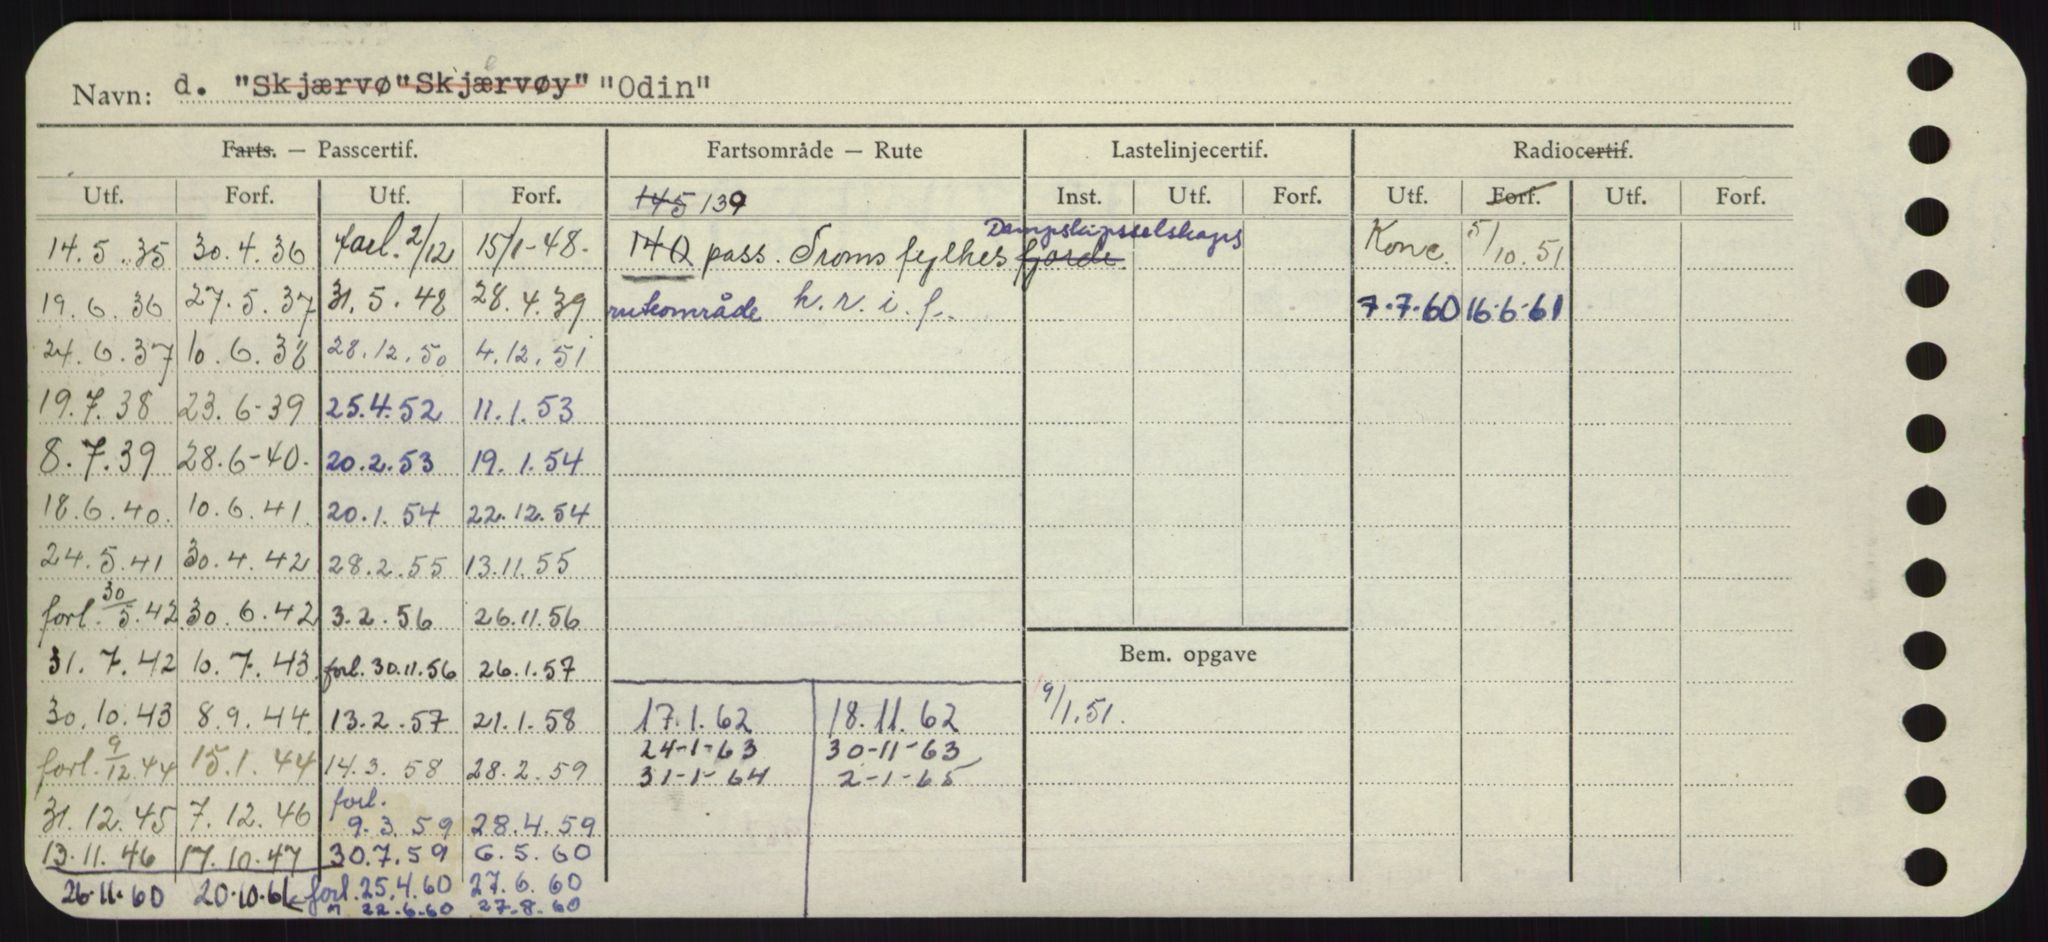 Navn: d. "Skjærvø" "Skjærvøy" "Odin"
Farts. — Passcertif. Fartsområde — Rute Lastelinjecertif. Radiocertif.
Utf. Forf. Utf. Forf. 145 139 Inst. Utf. Forf. Utf. Forf. Utf. Forf.
Dampskipsselskaps
14.5.35 30.4.36 forl. 2/12 15/1-48. 140 pass. Troms fylkes fjorde Konc. 5/10.51
19.6.36 27.5.37 31.5.48 28.4.39 ruteområde h.r.i.f. 7.7.60 16-6-61
24.6.37 10.6.38 28.12.50 4.12.51
19.7.38 23.6-39 25.4.52 11.1.53
8.7.39 28.6-40. 20.2.53 19.1.54
18.6.40. 10.6.41. 20.1.54 22.12.54
24.5.41 30.4.42 28.2.55 13.11.55
forl. 30/5.42 30.6.42 3.2.56 26.11.56
31.7.42 10.7.43 forl. 30.11.56 26.1.57 Bem. opgave
30.10.43 8.9.44 13.2.57 21.1.58 17.1.62 18.11.62 9/1.51.
24-1-63 30-11-63
forl. 9/12.44 15.1.44 14.3.58 28.2.59 31-1-64 2-1-65
forl.
31.12.45 7.12.46 9.3.59 28.4.59
13.11.46 17.10.47 30.7.59 6.5.60
26.11.60 20.10.61 forl. 25.4.60 27.6.60
" 22.6.60 27.8.60